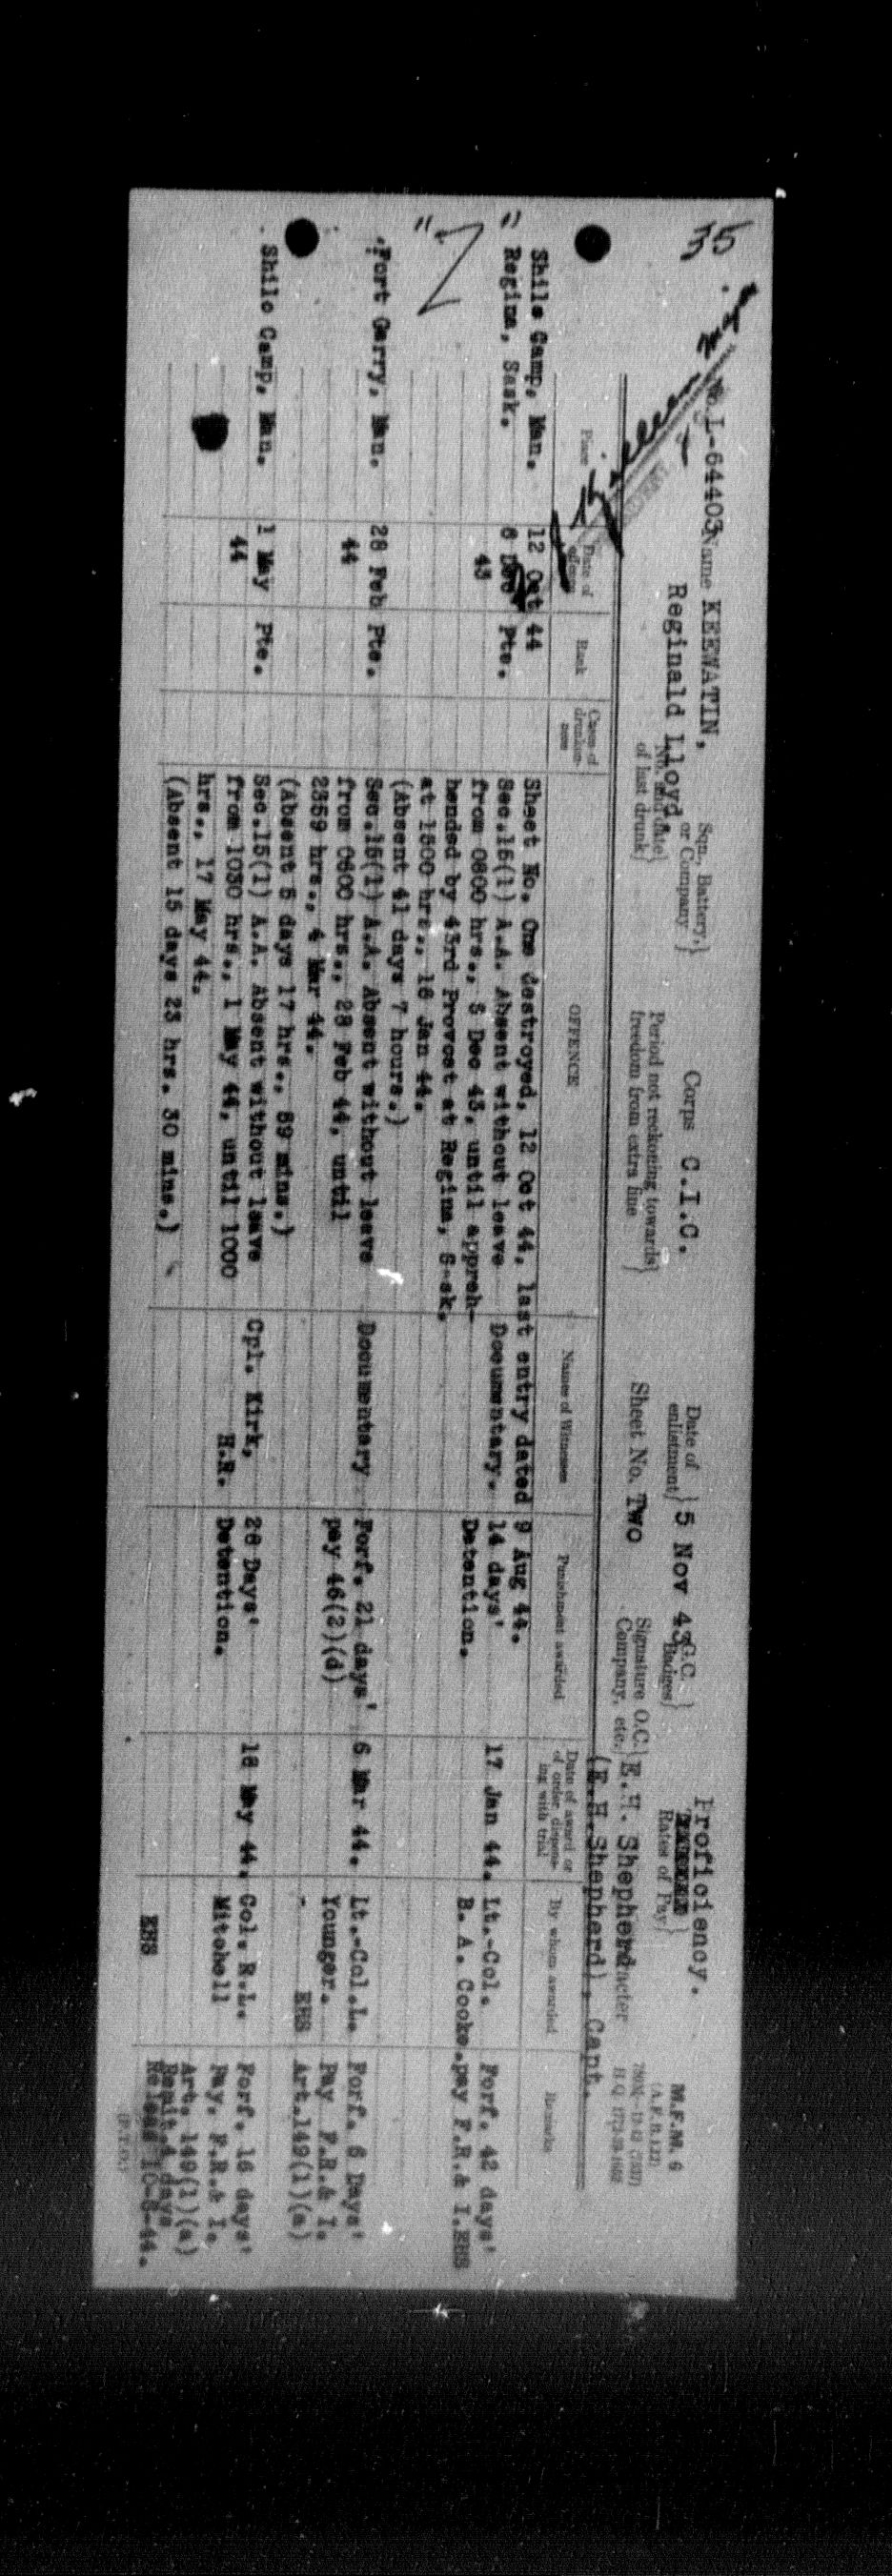 35
No. L-64403 Name KEEWATIN, Sqn., Battery, or Company Corps C.I.C. Date of enlistment 5 Nov 43 G.C. Badges Proficiency. Rates of Pay M.F.M. 6
Reginald Lloyd. No. and date of last drunk Period not reckoning towards freedom from extra fine Sheet No. Two Signature O.C. Company, etc. E.H. Shepherd
(E.H.Shepherd), Capt.
Place Date of offence Rank Cases of drunkenness OFFENCE Names of Witnesses Punishment awarded Date of award or of order dispensing with trial By whom awarded Remarks
Shilo Camp, Man. 12 Oct 44 Sheet No. One destroyed, 12 Oct 44, last entry dated 9 Aug 44.
Regina, Sask. 6 Dec Pte. Sec.15(1) A.A. Absent without leave Documentary. 14 days' 17 Jan 44. Lt.-Col. Forf. 42 days'
43 from 0800 hrs., 6 Dec 43, until appreh- Detention. B. A. Cooke. pay F.R.& I.EHS
hended by 43rd Provost at Regina, Sask.
at 1500 hrs., 16 Jan 44.
(Absent 41 days 7 hours.)
Fort Garry, Man. 28 Feb Pte. Sec.15(1) A.A. Absent without leave Documentary Forf. 21 days' 6 Mar 44. Lt.-Col.L. Forf. 6 Days'
44 from 0600 hrs., 28 Feb 44, until pay 46(2)(d) Younger. Pay F.R.& I.
2359 hrs., 4 Mar 44. EHS Art.149(1)(a)
(Absent 5 days 17 hrs., 59 mins.)
Shilo Camp, Man. 1 May Pte. Sec.15(1) A.A. Absent without leave Cpl. Kirk, 28 Days' 18 May 44. Col. R.L. Forf. 16 days'
44 from 1030 hrs., 1 May 44, until 1000 H.R. Detention. Mitchell Pay. F.R.& I.
hrs., 17 May 44. Art. 149(1)(a)
(Absent 15 days 23 hrs. 30 mins.) Remit.4 days
EHS Releas 10-6-44.
(P.T.O.)